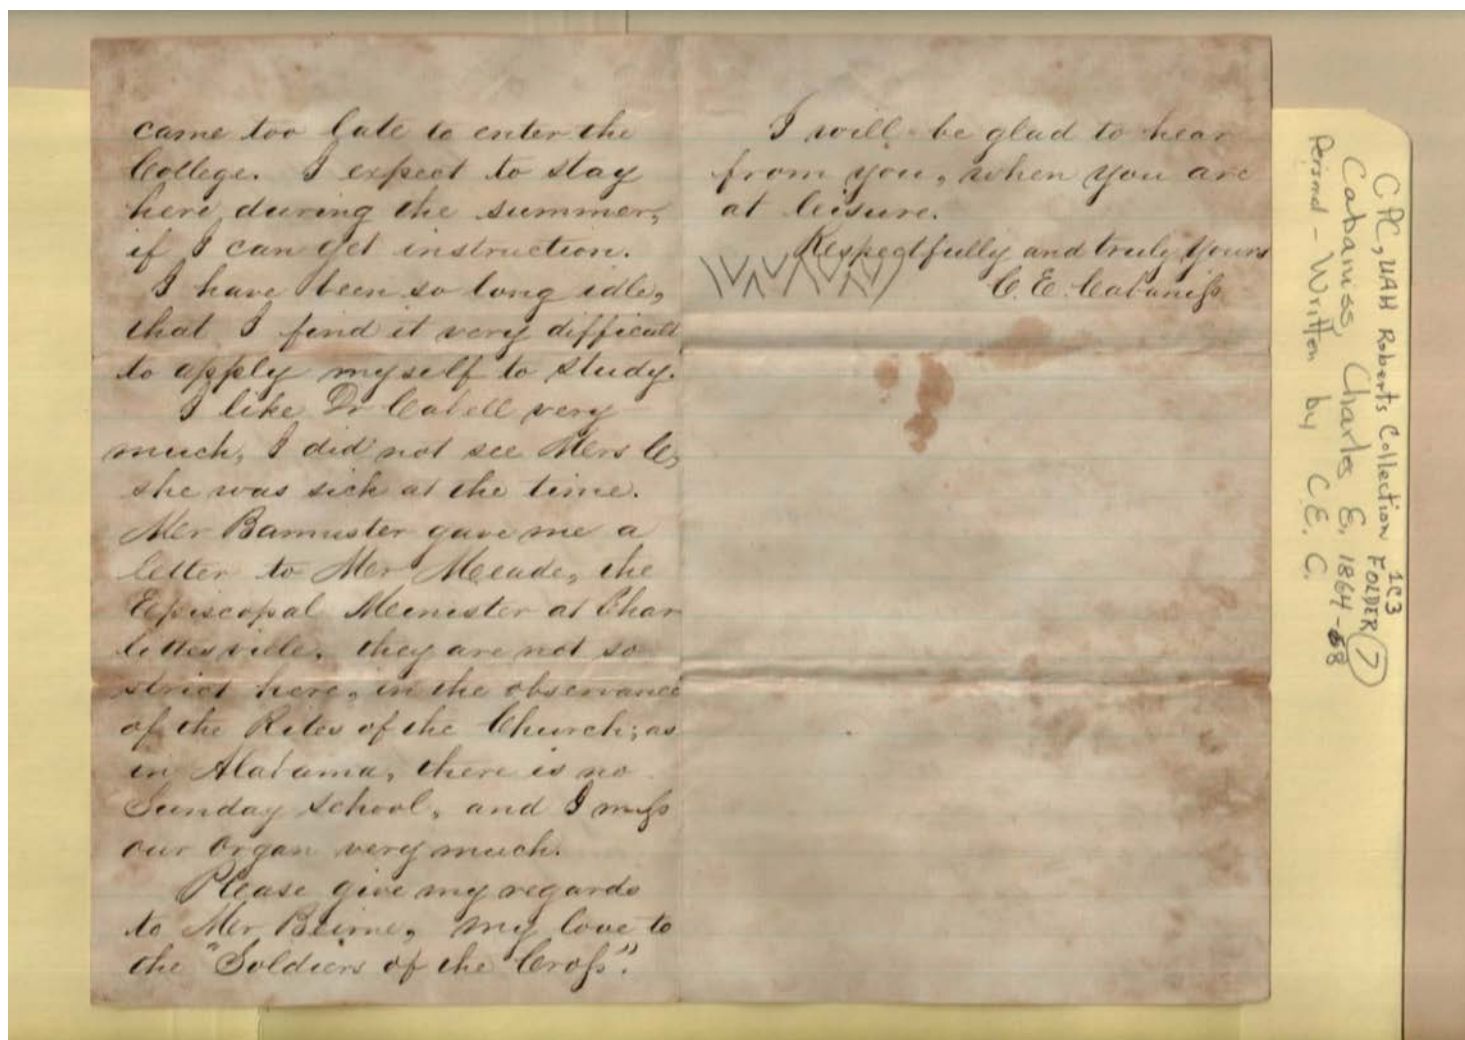 came too late to enter the
College. I expect to stay
here during the summer,
if I can get instruction.
I have been so long idle,
that I find it very difficult
to apply myself to study.
I like Dr Cabell very
much, I did not see Mrs C,
she was sick at the time.
Mr Bannister gave me a
letter to Mr Meade, the
Episcopal Minister at Char
lottesville. they are not so
strict here, in the observance
of the Rites of the Church; as
in Alabama, there is no
Sunday school, and I miss
our organ very much.
Please give my regards
to Mr Beirne, my love to
the "Soldiers of the Cross".
I will be glad to hear
from you, when you are
at leisure.
Respectfully and truly Yours
C. E. Cabaniss
CPC, UAH Roberts Collection 1C3 FOLDER 7
Cabaniss, Charles E. 1864-68
Personal - Written by C.E.C.